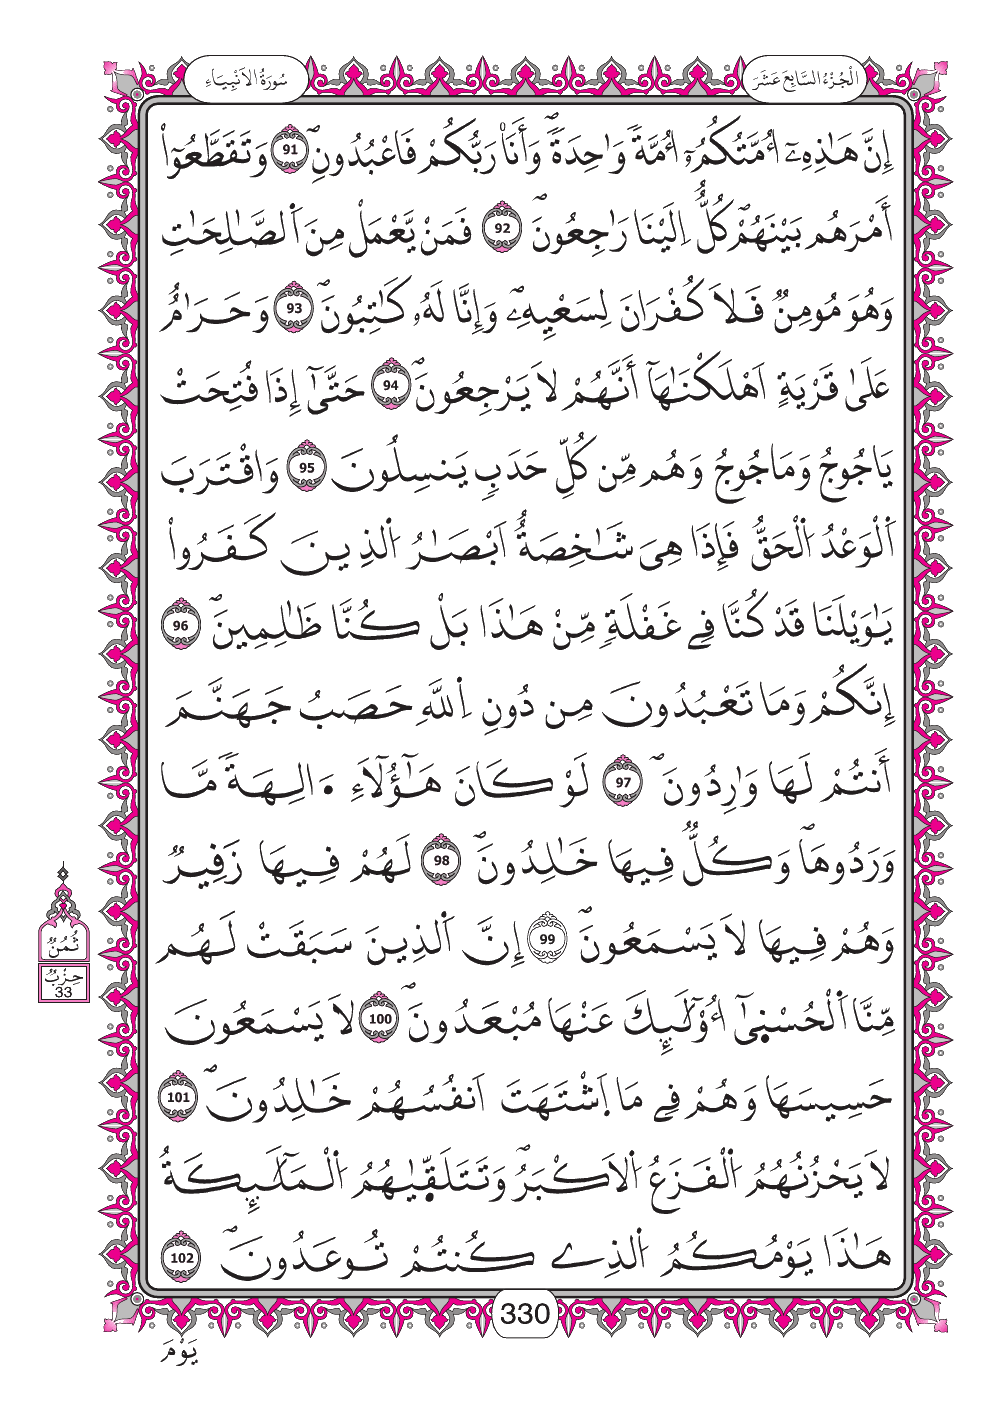 سُورَةُ الْأَنْبِيَاءِ
الْجُزْءُ السَّابِعَ عَشَرَ
إِنَّ هَٰذِهِۦٓ أُمَّتُكُمُۥٓ أُمَّةٗ وَٰحِدَةٗ وَأَنَا۠ رَبُّكُمْ فَاعْبُدُونِ 91 وَتَقَطَّعُوٓاْ
أَمْرَهُم بَيْنَهُمْ كُلٌّ إِلَيْنَا رَٰجِعُونَ 92 فَمَنْ يَّعْمَلْ مِنَ اَ۬لصَّٰلِحَٰتِ
وَهُوَ مُومِنٞ فَلَا كُفْرَانَ لِسَعْيِهِۦ وَإِنَّا لَهُۥ كَٰتِبُونَ 93 وَحَرَٰمٌ
عَلَىٰ قَرْيَةٍ اَهْلَكْنَٰهَآ أَنَّهُمْ لَا يَرْجِعُونَ 94 حَتَّىٰٓ إِذَا فُتِحَتْ
يَاجُوجُ وَمَاجُوجُ وَهُم مِّن كُلِّ حَدَبٖ يَنسِلُونَ 95 وَاقْتَرَبَ
اَ۬لْوَعْدُ اُ۬لْحَقُّ فَإِذَا هِيَ شَٰخِصَةٌ اَبْصَٰرُ اُ۬لذِينَ كَفَرُواْ
يَٰوَيْلَنَا قَدْ كُنَّا فِي غَفْلَةٖ مِّنْ هَٰذَا بَلْ كُنَّا ظَٰلِمِينَ 96
إِنَّكُمْ وَمَا تَعْبُدُونَ مِن دُونِ اِ۬للَّهِ حَصَبُ جَهَنَّمَ
أَنتُمْ لَهَا وَٰرِدُونَ 97 لَوْ كَانَ هَٰٓؤُلَآءِ اٰلِهَةٗ مَّا
وَرَدُوهَا وَكُلّٞ فِيهَا خَٰلِدُونَ 98 لَهُمْ فِيهَا زَفِيرٞ
وَهُمْ فِيهَا لَا يَسْمَعُونَ 99 إِنَّ اَ۬لذِينَ سَبَقَتْ لَهُم
مِّنَّا اَ۬لْحُسْنَىٰٓ أُوْلَٰٓئِكَ عَنْهَا مُبْعَدُونَ 100 لَا يَسْمَعُونَ
حَسِيسَهَا وَهُمْ فِي مَا اَ۪شْتَهَتَ اَنفُسُهُمْ خَٰلِدُونَ 101
لَا يَحْزُنُهُمُ اُ۬لْفَزَعُ اُ۬لَاكْبَرُ وَتَتَلَقَّىٰهُمُ اُ۬لْمَلَٰٓئِكَةُ
هَٰذَا يَوْمُكُمُ اُ۬لذِي كُنتُمْ تُوعَدُونَ 102
ثُمُنٌ
حِزْبٌ
33
330
يَوْمَ